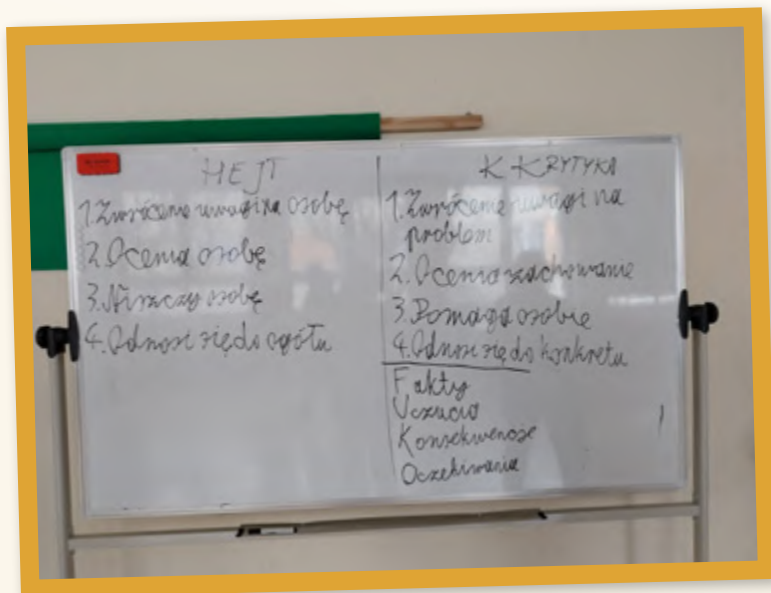 HEJT
1. Zwrócenie uwagi na osobę
2. Ocenia osobę
3. Niszczy osobę
4. Odnosi się do ogółu
K KRYTYKA
1. Zwrócenie uwagi na
problem
2. Ocenia zachowanie
3. Pomaga osobie
4. Odnosi się do konkretu
Fakty
Uczucia
Konsekwencje
Oczekiwania